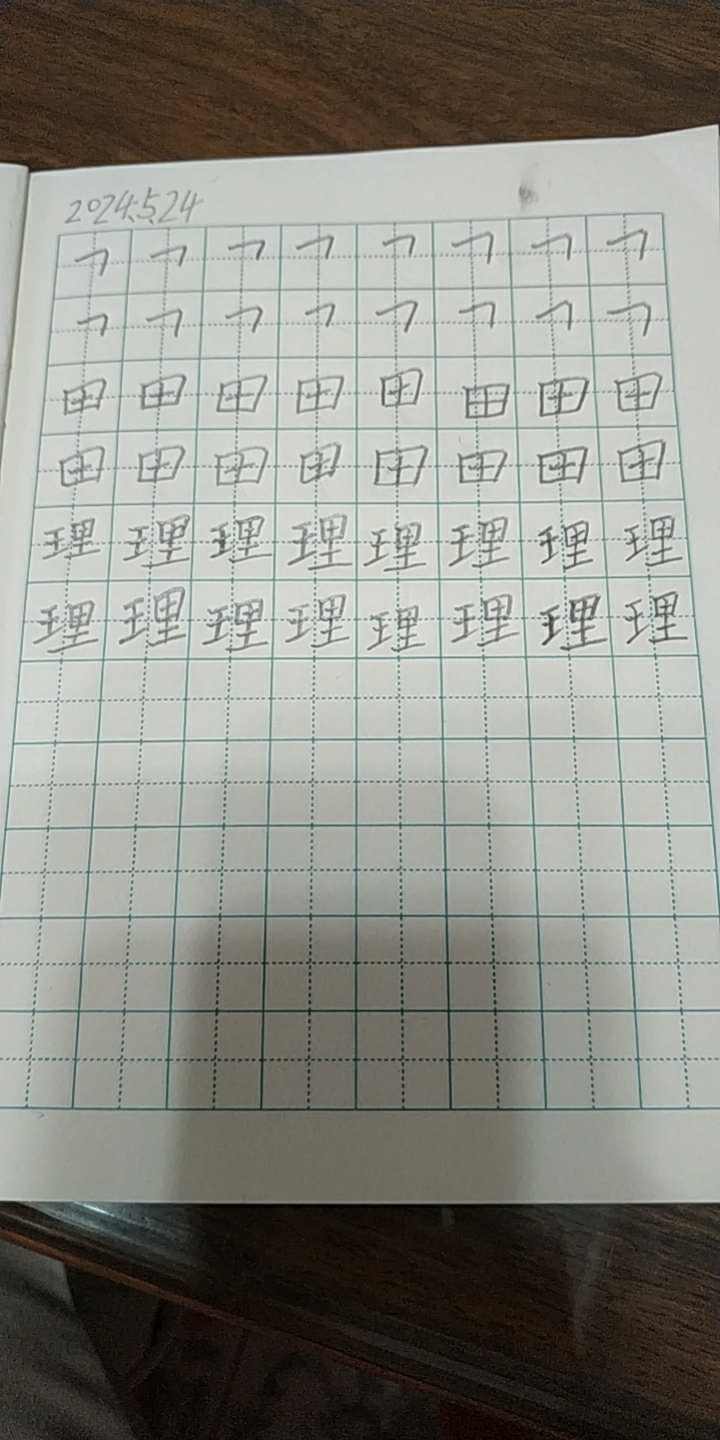 2024.5.24
㇕ ㇕ ㇕ ㇕ ㇕ ㇕ ㇕ ㇕
㇕ ㇕ ㇕ ㇕ ㇕ ㇕ ㇕ ㇕
田 田 田 田 田 田 田 田
田 田 田 田 田 田 田 田
理 理 理 理 理 理 理 理
理 理 理 理 理 理 理 理